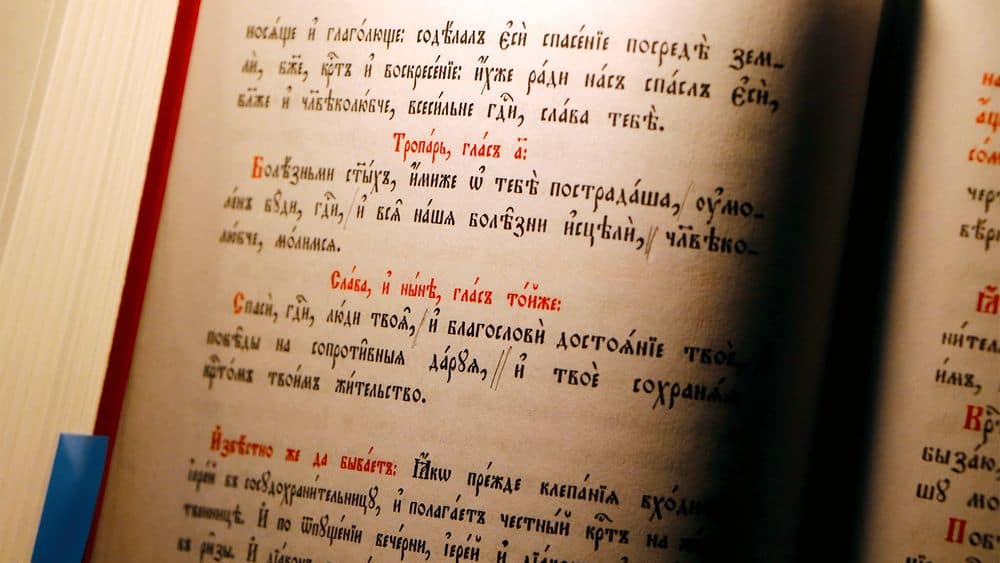 нося́ще и҆ глаго́люще: содѣ́лалъ є҆сѝ спасе́нїе посредѣ̀ зем-
лѝ, бж҃е, крⷭ҇тъ и҆ воскресе́нїе: и҆́хже ра́ди на́съ спа́слъ є҆сѝ,
бл҃же и҆ чл҃вѣколю́бче, всеси́льне гдⷭ҇и, сла́ва тебѣ̀.
Тропа́рь, гла́съ а҃:
Болѣ́зньми ст҃ы́хъ, и҆́миже ѡ҆ тебѣ̀ пострада́ша,/ ᲂу҆мо-
ле́нъ бꙋ́ди, гдⷭ҇и,/ и҆ всѧ̑ на́шѧ бѡлѣ̑зни и҆сцѣлѝ,// чл҃вѣко-
лю́бче, мо́лимсѧ.
Сла́ва, и҆ ны́нѣ, гла́съ то́йже:
Спасѝ, гдⷭ҇и, лю́ди твоѧ̑,/ и҆ благословѝ достоѧ́нїе твоѐ,/
побѣ̑ды на сопроти̑вныѧ да́рꙋѧ,// и҆ твоѐ сохранѧ́ѧ
крⷭ҇то́мъ твои́мъ жи́тельство.
И҆звѣ́стно же да быва́етъ: Ꙗ҆́кѡ пре́жде клепа́нїѧ вхо́ди
і҆ере́й въ сосꙋдохрани́тельницꙋ, и҆ полага́етъ честны́й крⷭ҇тъ на
И҆ по ѿпꙋще́нїи вече́рни, і҆ере́й и҆ дїа́ко
въ ри̑зы. И҆ дїа́конъ
на
а҆ц
со́м
чер
вѣ́р
ни́тел
и҆́мъ,
Крⷭ҇т
быза́ю
шꙋ̀ мо
Пов